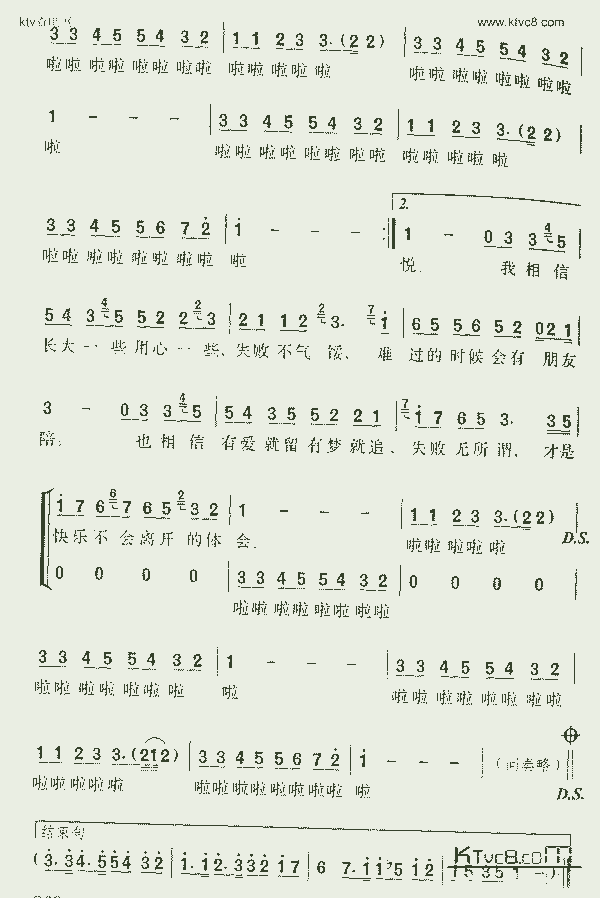 www.ktvc8.com
3 3 4 5 5 4 3 2 | 1 1 2 3 3·(2 2) | 3 3 4 5 5 4 3 2 |
啦啦 啦啦 啦啦 啦啦 啦啦 啦啦 啦 啦啦 啦啦 啦啦 啦啦
1 - - - | 3 3 4 5 5 4 3 2 | 1 1 2 3 3·(2 2) |
啦 啦啦 啦啦 啦啦 啦啦 啦啦 啦啦 啦
2.
3 3 4 5 5 6 7 2 | 1 - - - :| 1 - 0 3 3 4 5 |
啦啦 啦啦 啦啦 啦啦 啦 悦. 我 相 信
5 4 3 4 5 5 2 2 2 3 | 2 1 1 2 2 3· 7 1 | 6 5 5 6 5 2 0 2 1 |
长大 一 些 用心 一 些、 失败 不气 馁、 难 过的 时候 会有 朋友
3 - 0 3 3 4 5 | 5 4 3 5 5 2 2 1 | 7 1 7 6 5 3· 3 5 |
陪; 也 相 信 有爱 就留 有梦 就追、 失败 无所 谓, 才是
1 7 6 6 7 6 5 2 3 2 | 1 - - - | 1 1 2 3 3·(2 2) |
快乐 不 会 离开 的体 会. 啦啦 啦啦 啦 D.S.
0 0 0 0 | 3 3 4 5 5 4 3 2 | 0 0 0 0 |
啦啦 啦啦 啦啦 啦啦
3 3 4 5 5 4 3 2 | 1 - - - | 3 3 4 5 5 4 3 2 |
啦啦 啦啦 啦啦 啦啦 啦 啦啦 啦啦 啦啦 啦啦
1 1 2 3 3·(2 1 2) | 3 3 4 5 5 6 7 2 | 1 - - - | (间奏略) ||
啦啦 啦啦 啦 啦啦 啦啦 啦啦 啦啦 啦 D.S.
结束句
(3· 3 4· 5 5 4 3 2 | 1· 1 2· 3 3 2 1 7 | 6 7· 1 1 7 5 1 2 | 1 5 3 5 1 -)
KTvc8.com